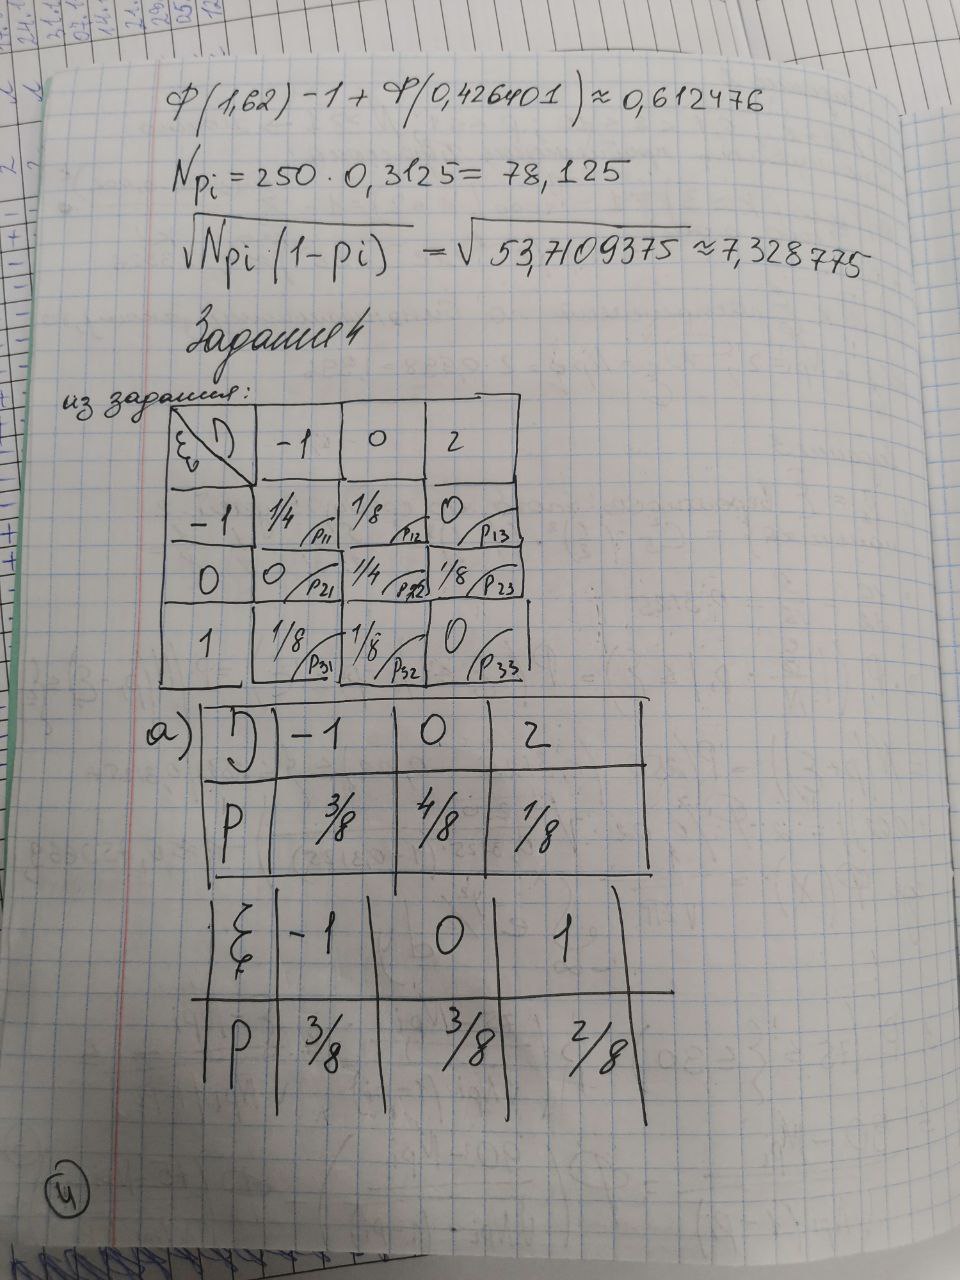 Φ(1,62) - 1 + Φ(0,426401) ≈ 0,612476
Npi = 250 · 0,3125 = 78,125
√Npi (1-pi) = √53,7109375 ≈ 7,328775
Задание 4
из задания:
ξ η -1 0 2
-1 1/4 p11 1/8 p12 0 p13
0 0 p21 1/4 p22 1/8 p23
1 1/8 p31 1/8 p32 0 p33
а) η -1 0 2
P 3/8 4/8 1/8
ξ -1 0 1
P 3/8 3/8 2/8
4